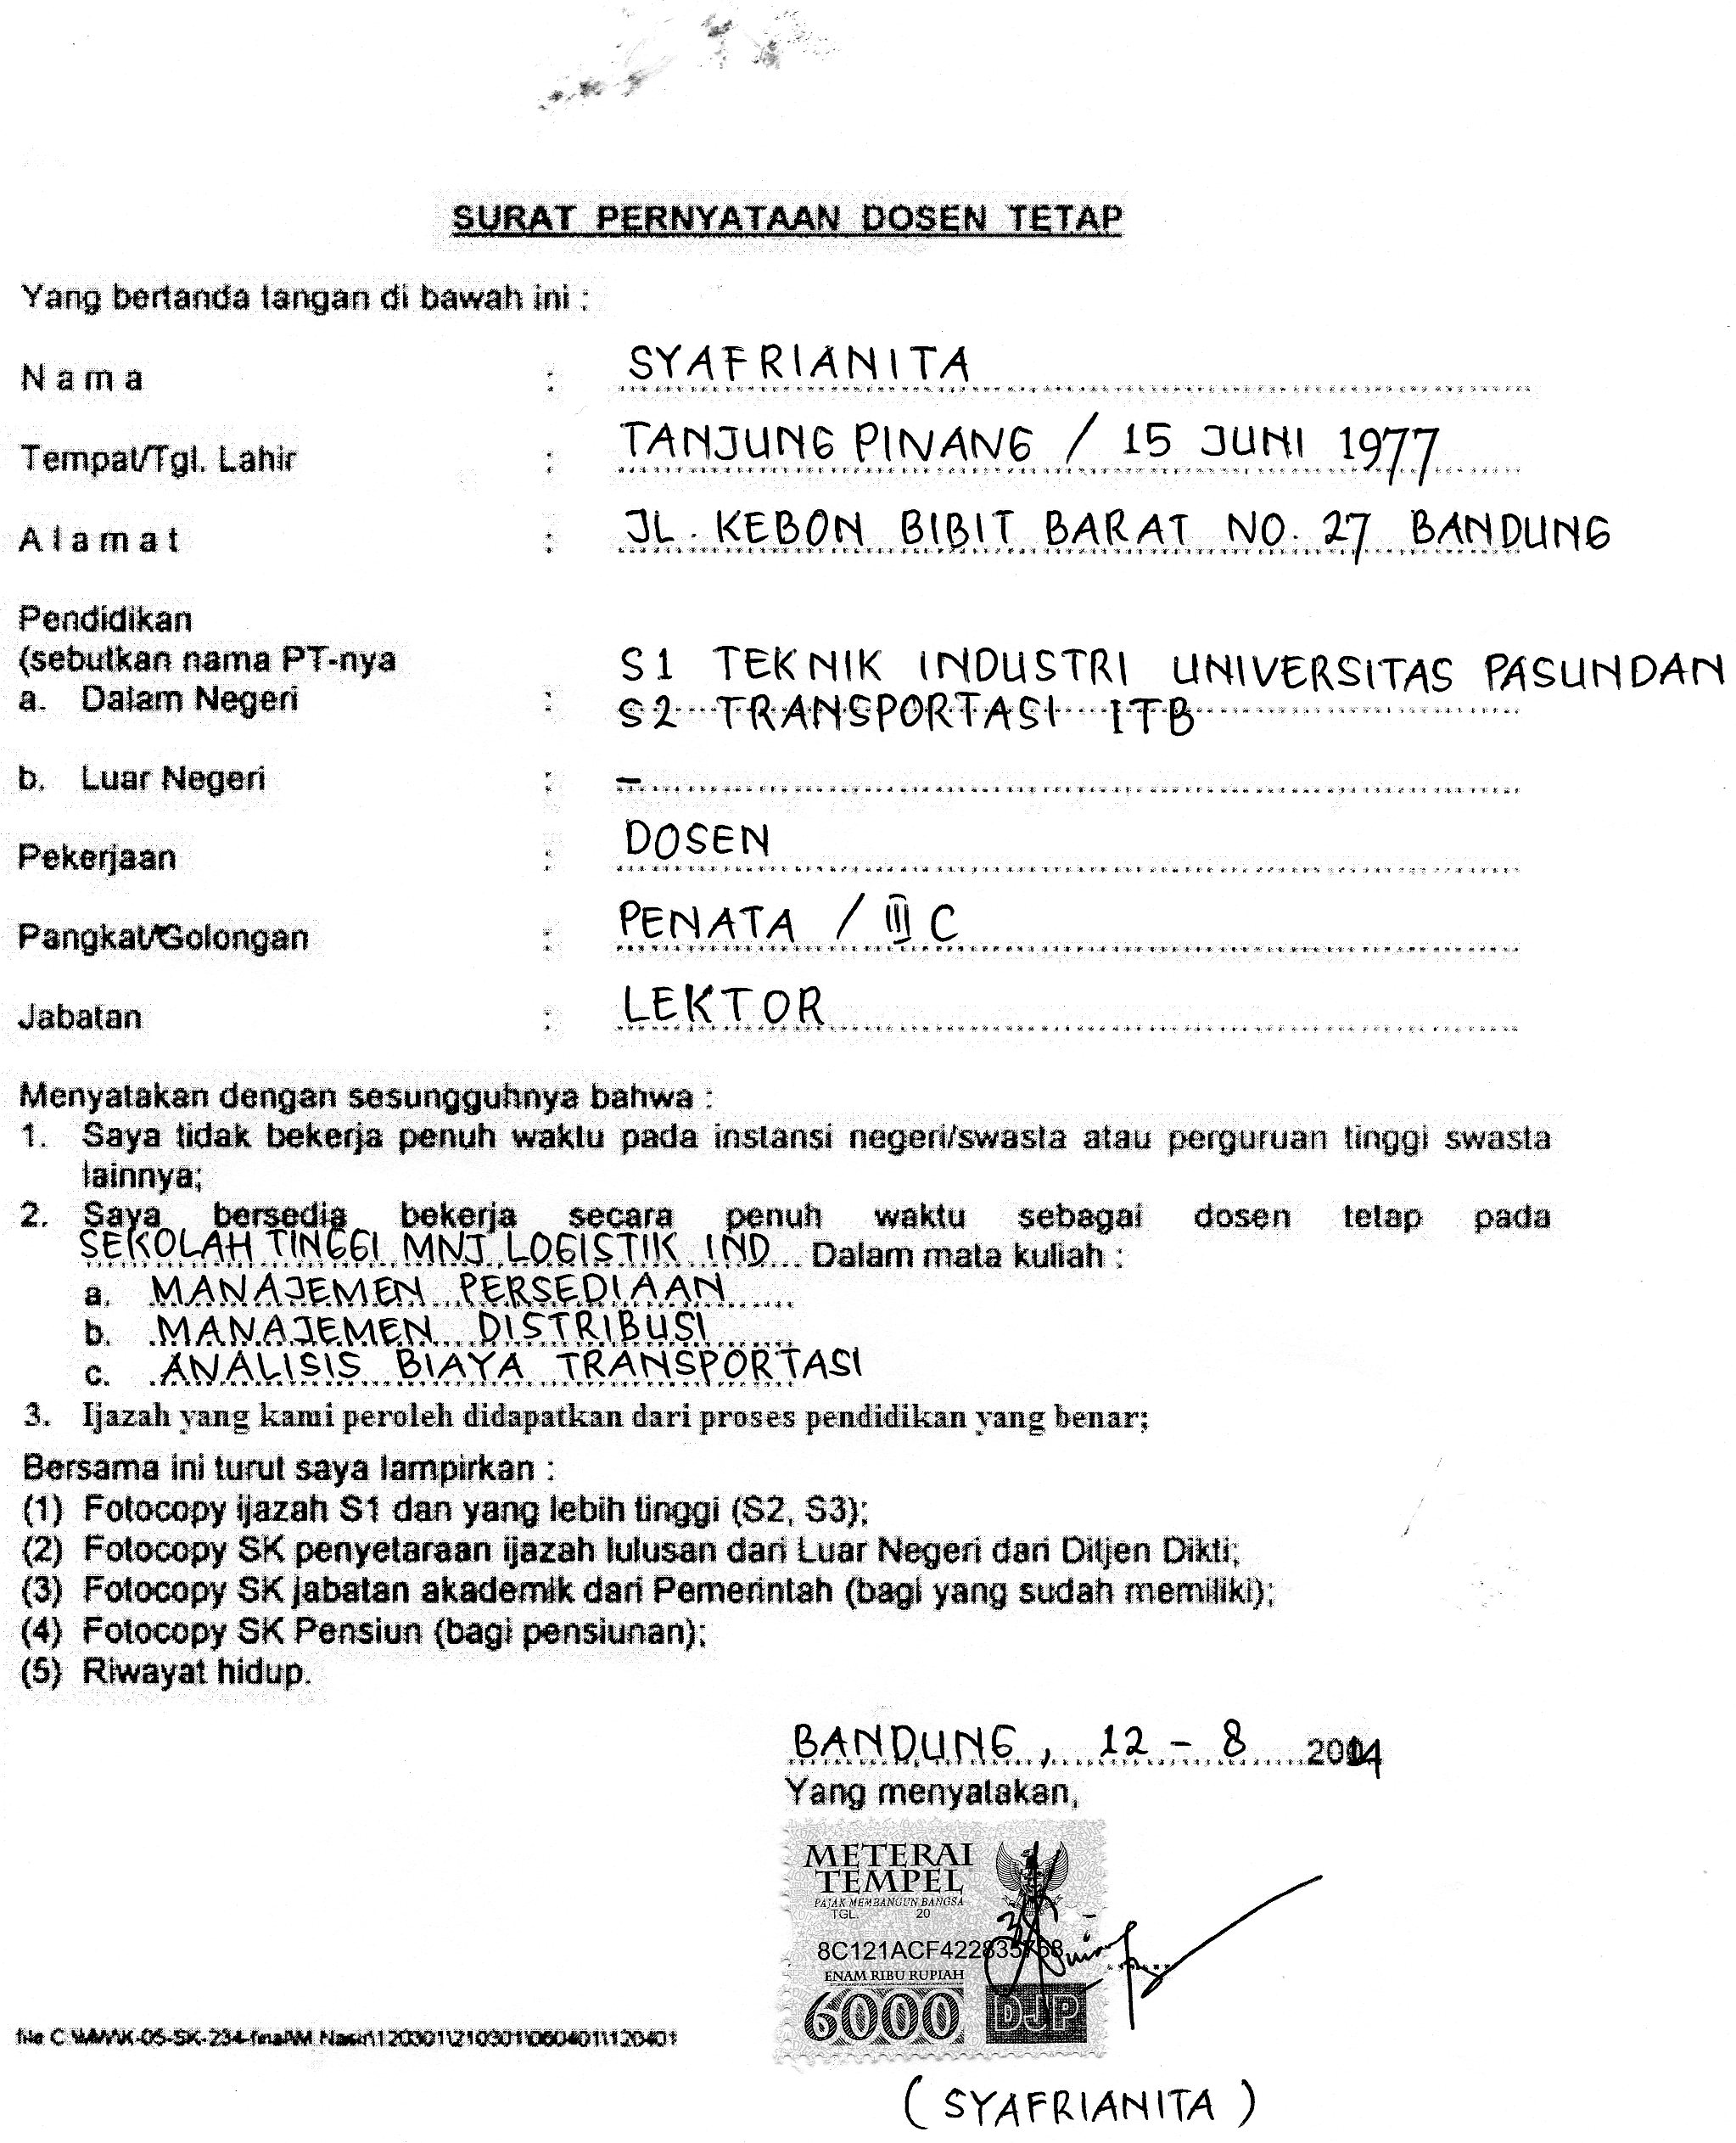 SURAT PERNYATAAN DOSEN TETAP
Yang bertanda tangan di bawah ini :
N a m a : SYAFRIANITA
Tempat/Tgl. Lahir : TANJUNG PINANG / 15 JUNI 1977
A l a m a t : JL. KEBON BIBIT BARAT NO. 27 BANDUNG
Pendidikan
(sebutkan nama PT-nya
S1 TEKNIK INDUSTRI UNIVERSITAS PASUNDAN
a. Dalam Negeri : S2 TRANSPORTASI ITB
b. Luar Negeri : –
Pekerjaan : DOSEN
Pangkat/Golongan : PENATA / III C
Jabatan : LEKTOR
Menyatakan dengan sesungguhnya bahwa :
1. Saya tidak bekerja penuh waktu pada instansi negeri/swasta atau perguruan tinggi swasta
lainnya;
2. Saya bersedia bekerja secara penuh waktu sebagai dosen tetap pada
SEKOLAH TINGGI MNJ LOGISTIK IND Dalam mata kuliah :
a. MANAJEMEN PERSEDIAAN
b. MANAJEMEN DISTRIBUSI
c. ANALISIS BIAYA TRANSPORTASI
3. Ijazah yang kami peroleh didapatkan dari proses pendidikan yang benar;
Bersama ini turut saya lampirkan :
(1) Fotocopy ijazah S1 dan yang lebih tinggi (S2, S3);
(2) Fotocopy SK penyetaraan ijazah lulusan dari Luar Negeri dari Ditjen Dikti;
(3) Fotocopy SK jabatan akademik dari Pemerintah (bagi yang sudah memiliki);
(4) Fotocopy SK Pensiun (bagi pensiunan);
(5) Riwayat hidup.
BANDUNG, 12 - 8 2014
Yang menyatakan,
METERAI
TEMPEL
PAJAK MEMBANGUN BANGSA
TGL. 20
8C121ACF422835768
ENAM RIBU RUPIAH
6000 DJP
( SYAFRIANITA )